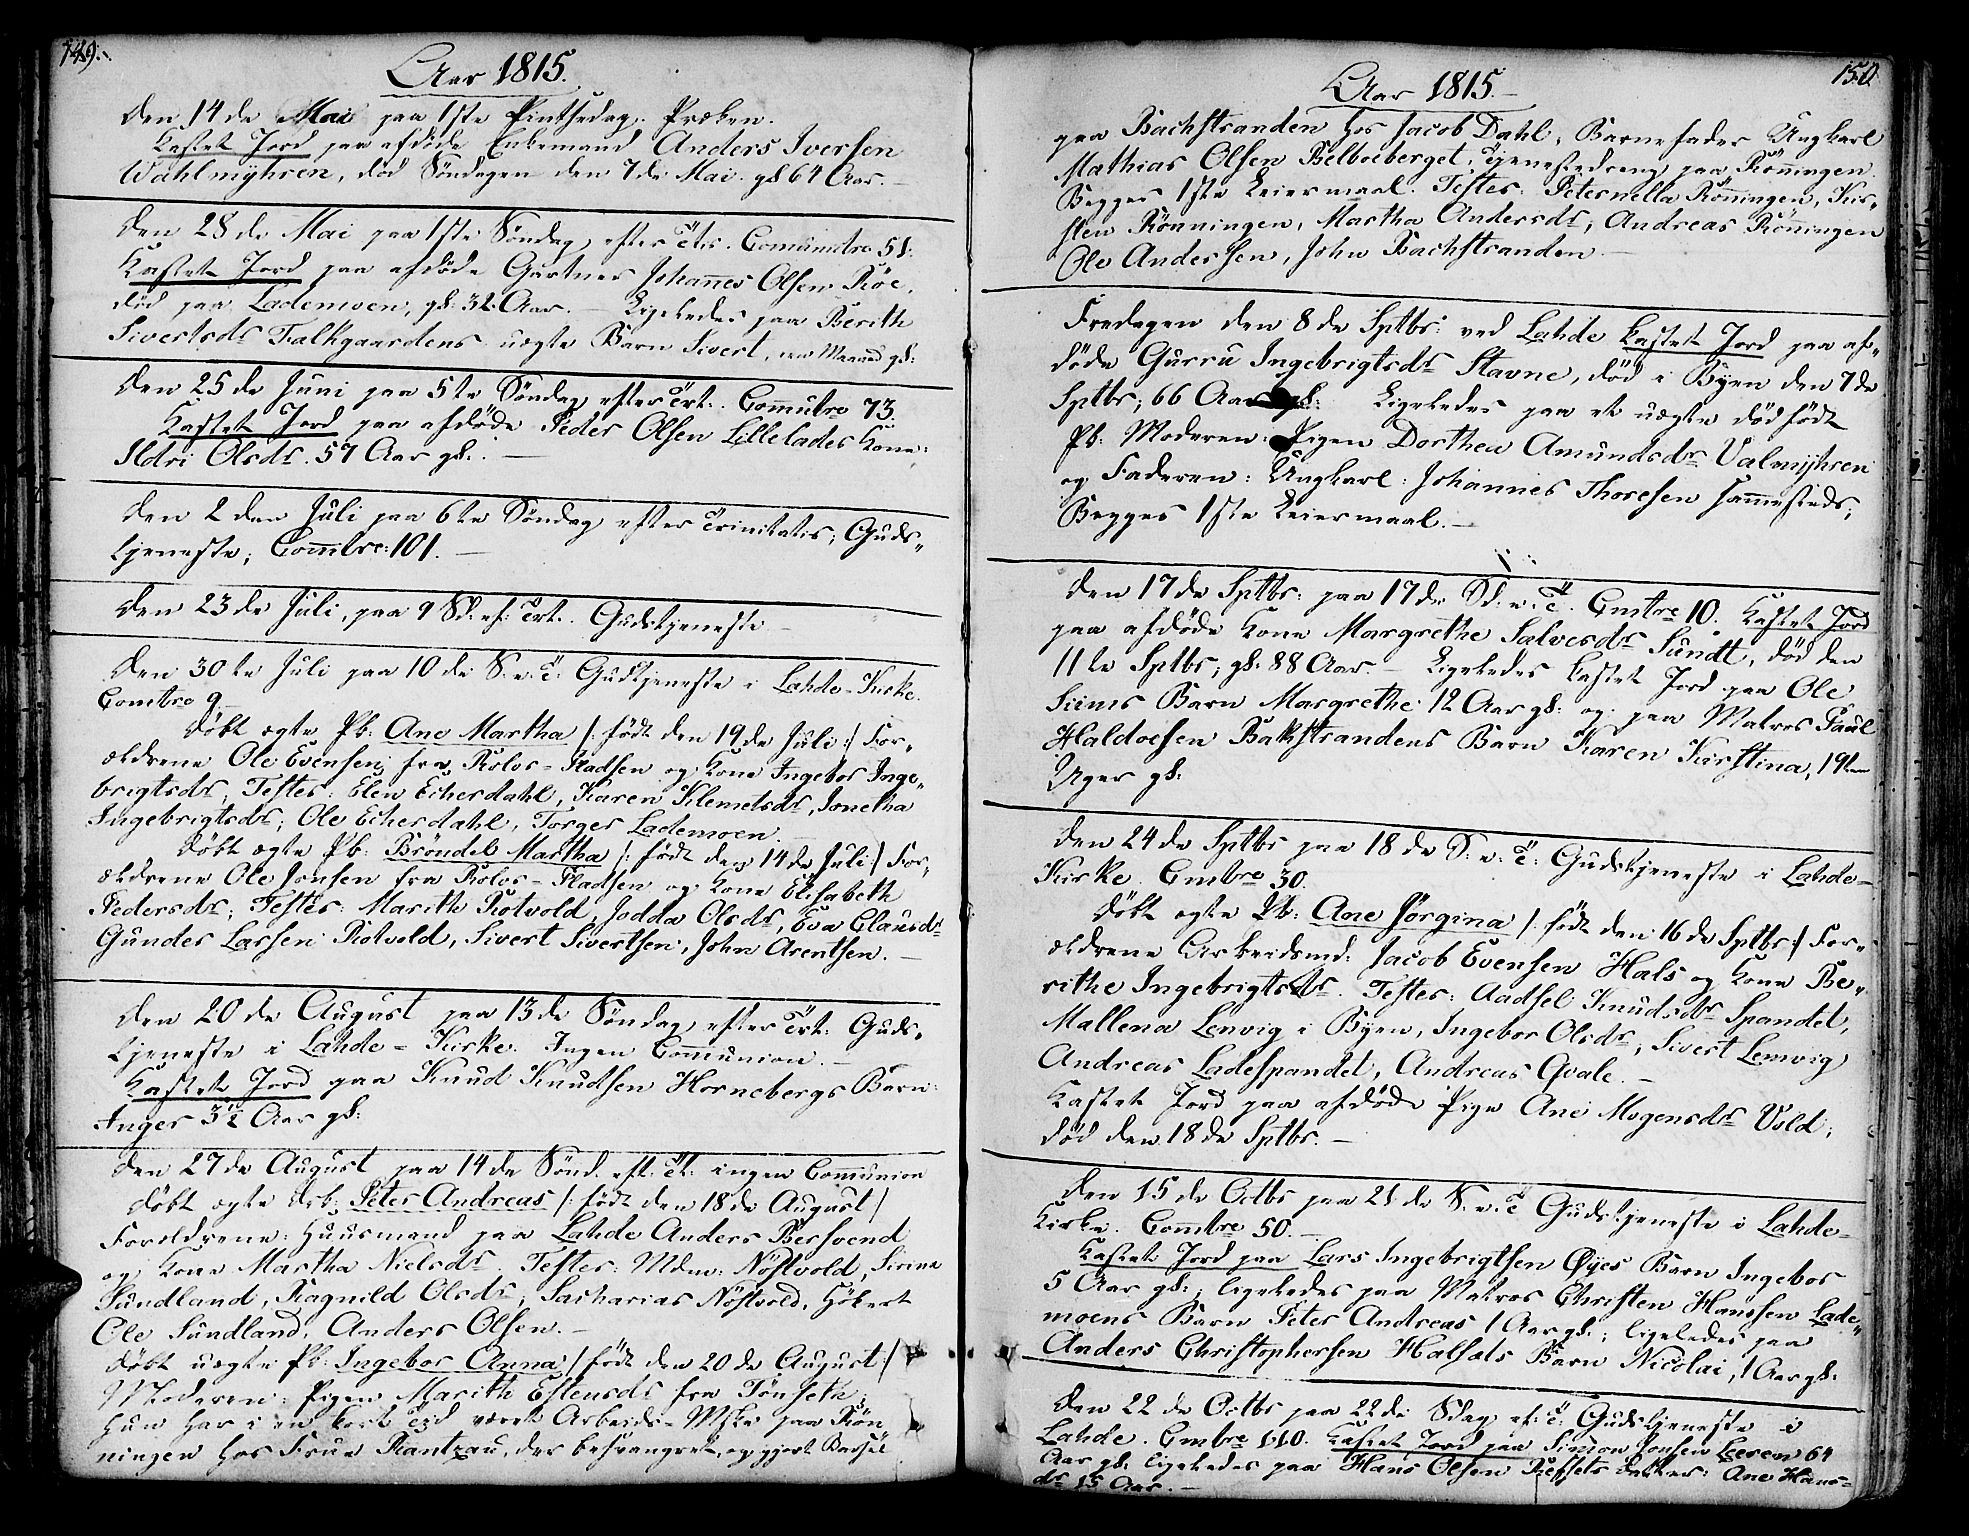 149.
Aar 1815.
Den 14de Mai paa 1ste Pintsedag. Præken.
Kastet Jord paa afdöde Enkemand Anders Iversen
Wahlmyhren, död Söndagen den 7de Mai. gl: 64 Aar.
Den 28de Mai paa 1ste Söndag efter Trs. Comunctre 51.
Kastet Jord paa afdöde Gartner Johannes Olsen Röe,
död paa Lademoen, gl: 32 Aar. – Ligeledes paa Berith
Sivertsdr Falkgaardens uægte Barn Sivert, Maaned gl:
Den 25de Juni paa 5te Söndag efter Trt. Comutre 73.
Kastet Jord paa afdöde Peder Olsen Lillelades Kone:
Ildri Olsdr. 57 Aar gl: –
Den 2den Juli paa 6te Söndag efter Trinitatis, Guds„
tjeneste, Commtre: 101. –
Den 23de Juli, paa 9 Sd. ef: Trt. Gudstjeneste –
Den 30te Juli paa 10de S. e. T: Gudstjeneste i Lahde-Kirke.
Comtre 9.
Döbt ægte Pb: Ane Martha /: födt den 19de Juli :/ For„
ældrene Ole Evensen fra Rolos-Pladsen og Kone Ingebor Inge„
brigtsdr, Testes: Elen Eckerdahl, Karen Klemetsdr, Jonetha
Ingebrigtsdr, Ole Eckerdahl, Torger Lademoen.
Döbt ægte Pb: Bröndel Martha /: födt den 14de Juli :/ For„
ældrene Ole Jonsen fra Rolos-Pladsen og Kone Elisabeth
Pedersdr; Testes: Marith Rotvold, Jodda Olsdr, Eva Clausdr
Gunder Larsen Rotvold, Sivert Sivertsen, John Arentsen. –
Den 20de August paa 13de Söndag efter Trt: Guds„
tjeneste i Lahde-Kirke. Ingen Communion. –
Kastet Jord paa Knud Knudsen Hornebergs Barn:
Inger 3½ Aar gl:
Den 27de August paa 14de Sönd. eft: Tt: ingen Communion
Döbt ægte Drb: Peter Andreas /: födt den 18de August /
Forældrene: Huusmand paa Lahde Anders Bersvend
og Kone Martha Nielsdr. Testes: Mdm: Nöstvold, Sirina
Sundland, Ragnild Olsdr, Sacharias Nöstvold, Hökert
Ole Sundland, Anders Olsen. –
Döbt uægte Pb: Ingebor Anna /: födt den 20de August :/
Moderen: Pigen Marith Estensdr fra Tönseth;
hun har i en kort Tid været Arbeids-Mske paa Rön
ningen hos Frue Rantzau, der besvangret, og gjort Barsel
150.
Aar 1815. –
paa Bachstranden hos Jacob Dahl, Barnefader Ungkarl
Mathias Olsen Belboeberget, Tjenestedreng paa Rönningen.
Begges 1ste Leiermaal. Testes: Peternella Rönningen, Kir„
sten Rönningen, Martha Andersdr, Andreas Röningen
Ole Andersen, John Bachstranden. –
Fredagen den 8de Sptbr: ved Lahde Kastet Jord paa af„
döde Gurru Ingebrigtsdr Stavne, död i Byen den 7de
Sptbr; 66 Aar gl: Ligeledes paa et uægte dödfödt
Pb: Moderen: Pigen Dorthea Amundsdr Valmyhren
og Faderen: Ungkarl: Johannes Thoresen sammesteds,
Begges 1ste Leiermaal. –
Den 17de Sptbr: paa 17de Sd. e. T. Cmtre 10. Kastet Jord
paa afdöde Kone Margrethe Salvesdr Sundt, död den
11te Sptbr; gl: 88 Aar. – Ligeledes kastet Jord paa Ole
Siims Barn Margrethe 12 Aar gl: og paa Matros Paul
Haldoesen Bakstrandens Barn Karen Kirstina, 19ten
Uger gl:
Den 24de Sptbr paa 18de S: e. T: Gudstjeneste i Lahde-
Kirke. Cmbre 30.
Döbt ægte Pb: Ane Jörgina /: födt den 16de Sptbr :/ For„
ældrene Arbeidsmd: Jacob Evensen Hals og Kone Be„
rithe Ingebrigtsdr. Testes: Aadsel Knudsdr Spandet,
Mallena Lenvig i Byen, Ingebor Olsdr, Sivert Lenvig
Andreas Ladespandet, Andreas Qvale. –
Kastet Jord paa afdöde Pige Ane Mogensdr Vold;
död den 18de Sptbr. –
Den 15de Octbr paa 21de S. e. T Gudstjeneste i Lahde-
Kirke. Commbre 50. –
Kastet Jord paa Lars Ingebrigtsen Øyes Barn Ingebor
5 Aar gl:, ligeledes paa Matros Christen Hanssen Lade„
moens Barn Peter Andreas 1 Aar gl:; ligeledes paa
Anders Christophersen Halsats Barn Nicolai, 1 Aar gl:
Den 22de Octbr paa 22de Sdag ef: T: Gudstjeneste i
Lahde. Cmbre 110. Kastet Jord paa Simon Jonsen Leeren 64
Aar gl: ligeledes paa Hans Olsen Datter: Ane Hans-
dr 15 Aar. –